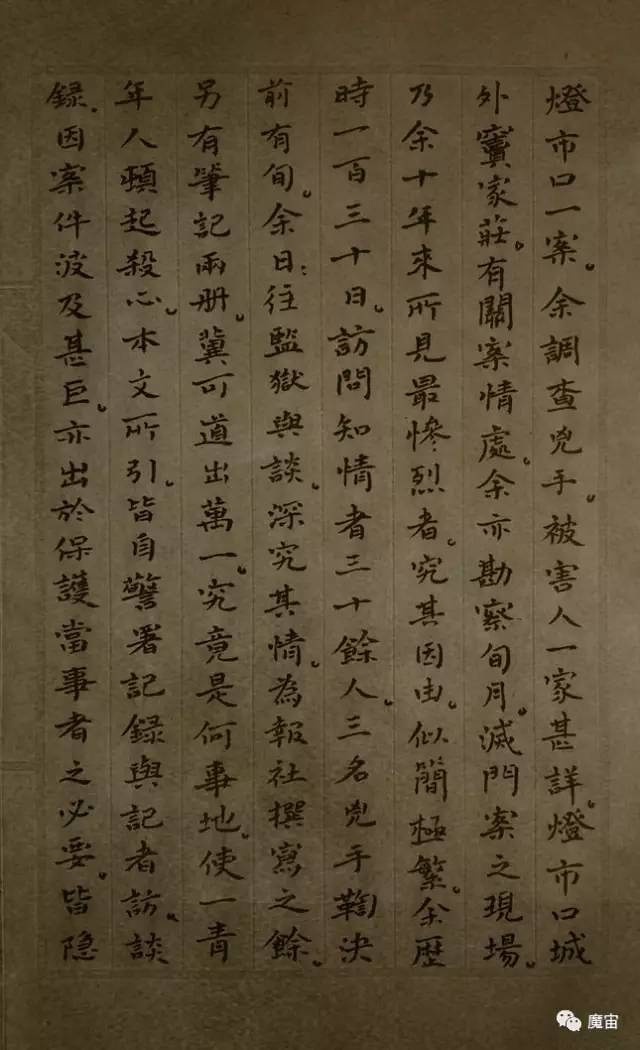 燈市口一案。余調查兇手。被害人一家甚詳。燈市口城
外竇家莊。有關案情處。余亦勘察旬月。滅門案之現場。
乃余十年來所見最慘烈者。究其因由。似簡極繁。余歷
時一百三十日。訪問知情者三十餘人。三名兇手鞫決
前有旬。余日：往監獄與談。深究其情。為報社撰寫之餘。
另有筆記兩册。冀可道出萬一。究竟是何事地。使一青
年人頓起殺心。本文所引。皆自警署記録與記者訪。談
録。因案件波及甚巨。亦出於保護當事者之必要。皆隐
魔宙